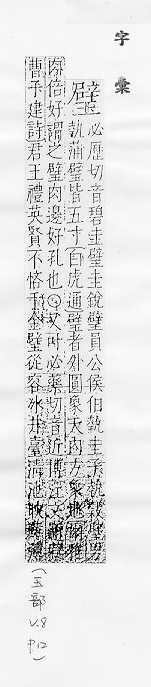 字彙
璧 必歷切音碧圭璧圭銳璧員公侯伯執圭子執穀璧男
執蒲璧皆五寸 白虎通璧者外圓象天內方象地
肉倍好謂之璧肉邊好孔也 又叶必藥切音近博
曹子建詩君王禮英賢不悋千金璧從容冰井臺清池映
(玉部
V.8
P.12)